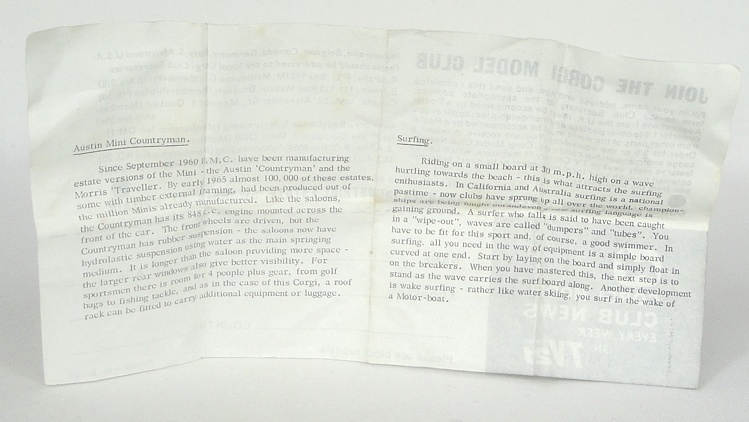 Austin Mini Countryman.
Since September 1960 B.M.C. have been manufacturing
estate versions of the Mini - the Austin 'Countryman' and the
Morris 'Traveller. By early 1965 almost 100,000 of these estates,
some with timber external framing, had been produced out of
the million Minis already manufactured. Like the saloons,
the Countryman has its 848c.c. engine mounted across the
front of the car. The front wheels are driven, but the
Countryman has rubber suspension - the saloons now have
hydrolastic suspension using water as the main springing
medium. It is longer than the saloon providing more space -
the larger rear windows also give better visibility. For
sportsmen there is room for 4 people plus gear, from golf
bags to fishing tackle, and as in the case of this Corgi, a roof
rack can be fitted to carry additional equipment or luggage.
Surfing.
Riding on a small board at 30 m.p.h. high on a wave
hurtling towards the beach - this is what attracts the surfing
enthusiasts. In California and Australia surfing is a national
pastime - now clubs have sprung up all over the world, champion-
ships are being fought surfing language is
gaining ground. A surfer who falls is said to have been caught
in a "wipe-out", waves are called "dumpers" and "tubes". You
have to be fit for this sport and, of course, a good swimmer. In
surfing, all you need in the way of equipment is a simple board
curved at one end. Start by laying on the board and simply float in
on the breakers. When you have mastered this, the next step is to
stand as the wave carries the surf board along. Another development
is wake surfing - rather like water skiing, you surf in the wake of
a Motor-boat.
JOIN THE CORGI MODEL CLUB
CLUB NEWS
EVERY WEEK
IN
TV21